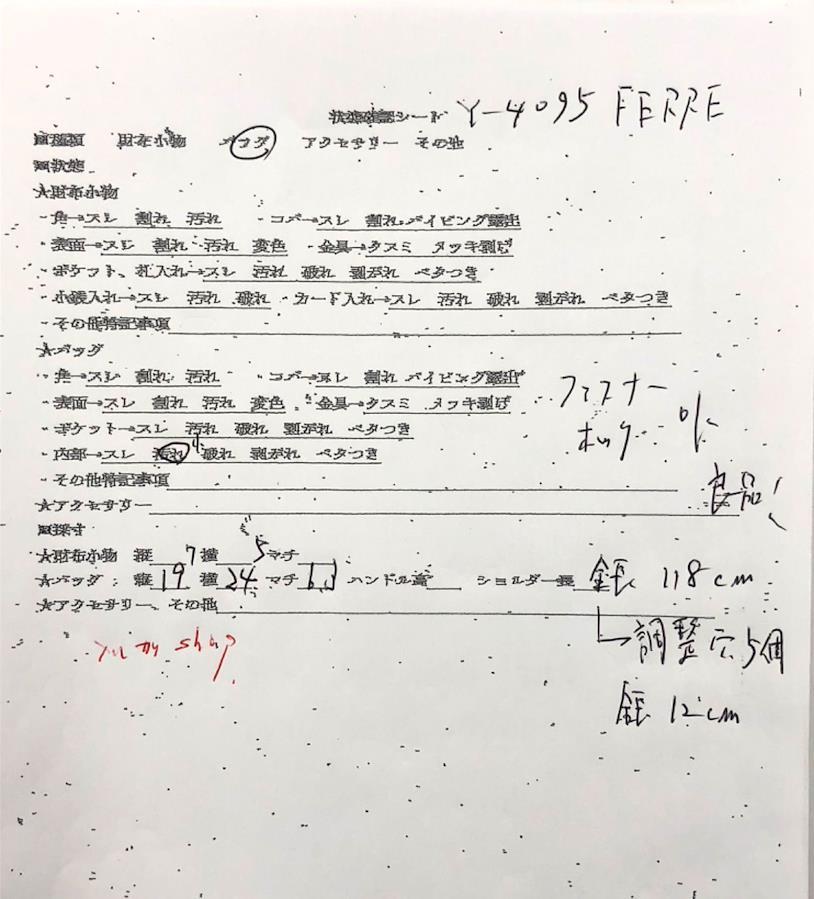 状態確認シート Y-4095 FERRE
■種類 財布小物 バッグ アクセサリー その他
■状態
★財布小物
・角→スレ 割れ 汚れ ・コバ→スレ 割れ パイピング露出
・表面→スレ 割れ 汚れ 変色 ・金具→クスミ メッキ剥げ
・ポケット、札入れ→スレ 汚れ 破れ 剥がれ ベタつき
・小銭入れ→スレ 汚れ 破れ ・カード入れ→スレ 汚れ 破れ 剥がれ ベタつき
・その他特記事項
★バッグ
・角→スレ 割れ 汚れ ・コバ→スレ 割れ パイピング露出
・表面→スレ 割れ 汚れ 変色 ・金具→クスミ メッキ剥げ
ファスナー
・ポケット→スレ 汚れ 破れ 剥がれ ベタつき
ホック OK
・内部→スレ 汚れ 小 破れ 剥がれ ベタつき
・その他特記事項
良品!
★アクセサリー
■採寸
★財布小物 縦 横 マチ
7 5
★バッグ: 縦 19 横 24 マチ ハンドル高 ショルダー長 118cm
★アクセサリー、その他
調整穴5個
12cm
shop